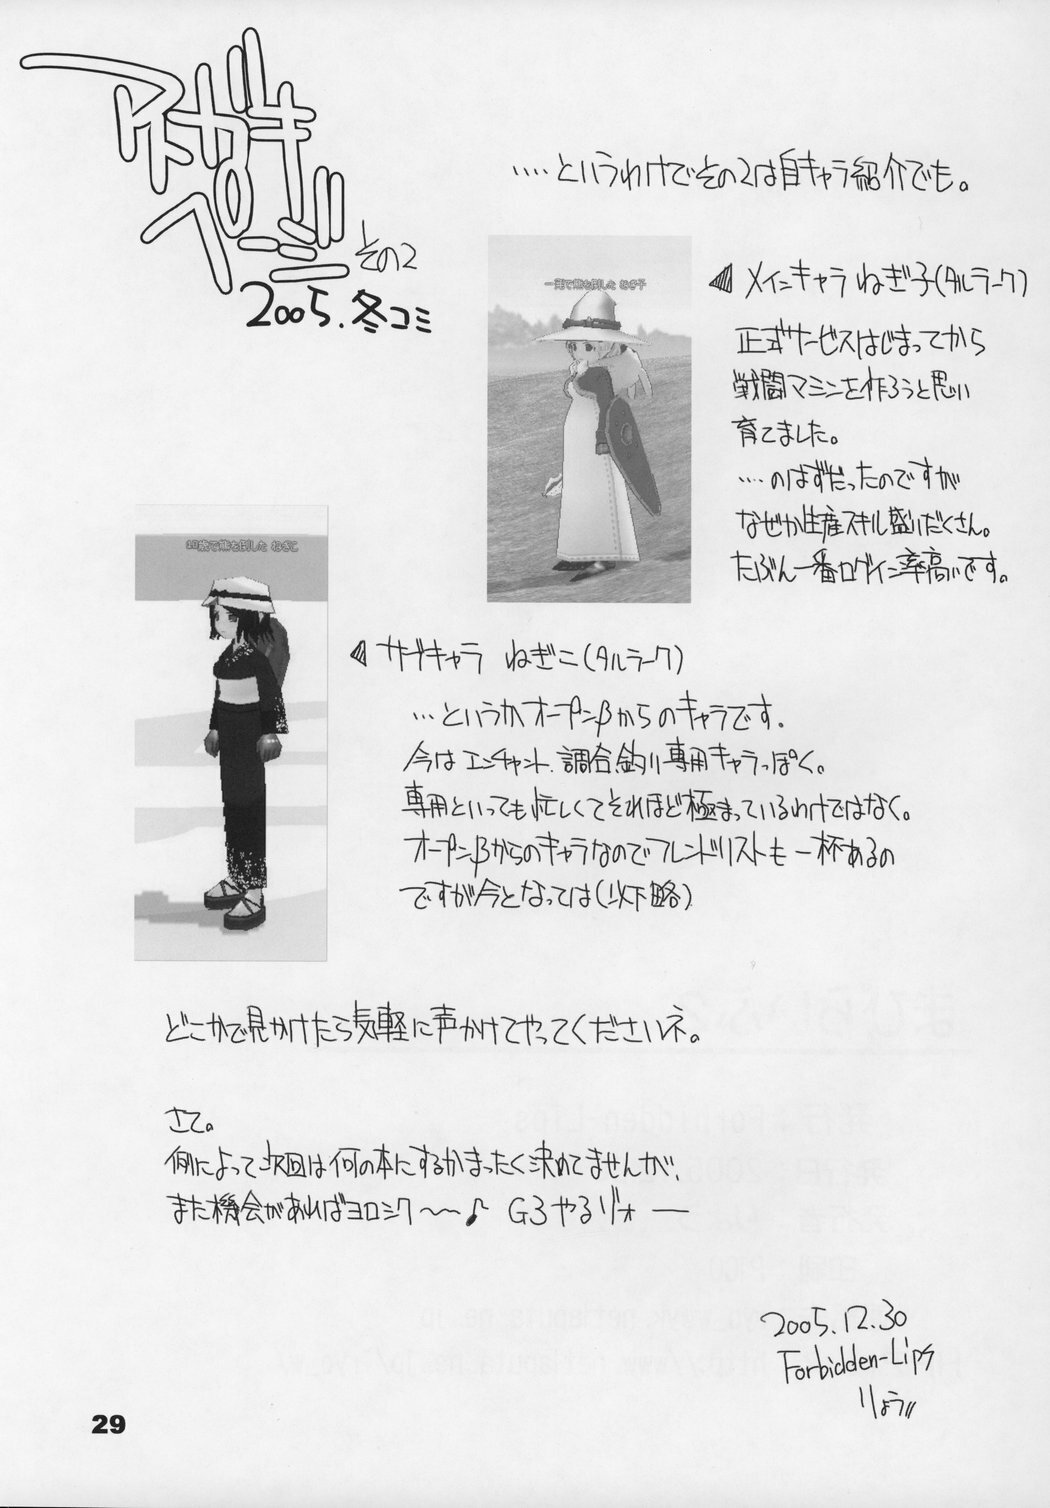 アトがき
ページ
その2
2005.冬コミ
....というわけでその2は自キャラ紹介でも。
一弾で熊を倒した ねぎ子
メインキャラ ねぎ子(タルラーク)
正式サービスはじまってから
戦闘マシンを作ろうと思い
育てました。
....のはずだったのですが
なぜか生産スキル盛りだくさん。
たぶん一番ログイン率高いです。
10歳で熊を倒した ねぎこ
サブキャラ ねぎこ(タルラーク)
...というかオープンβからのキャラです.
今はエンチャント.調合.釣り専用キャラっぽく。
専用といっても忙しくてそれほど極まっているわけではなく。
オープンβからのキャラなのでフレンドリストも一杯あるの
ですが今となっては(以下略)
どこかで見かけたら気軽に声かけてやってくださいネ。
さて。
例によって次回は何の本にするかまったく決めてませんが、
また機会があればヨロシク〜〜♪ G3やるゾォー
2005.12.30
Forbidden-Lips
りょう
29